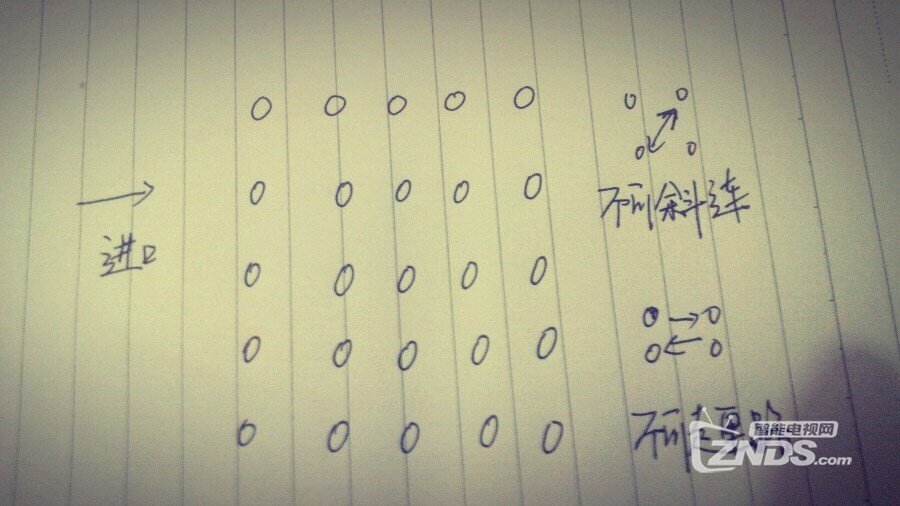 进口
不可斜连
不可走
智能电视网
ZNDS.com